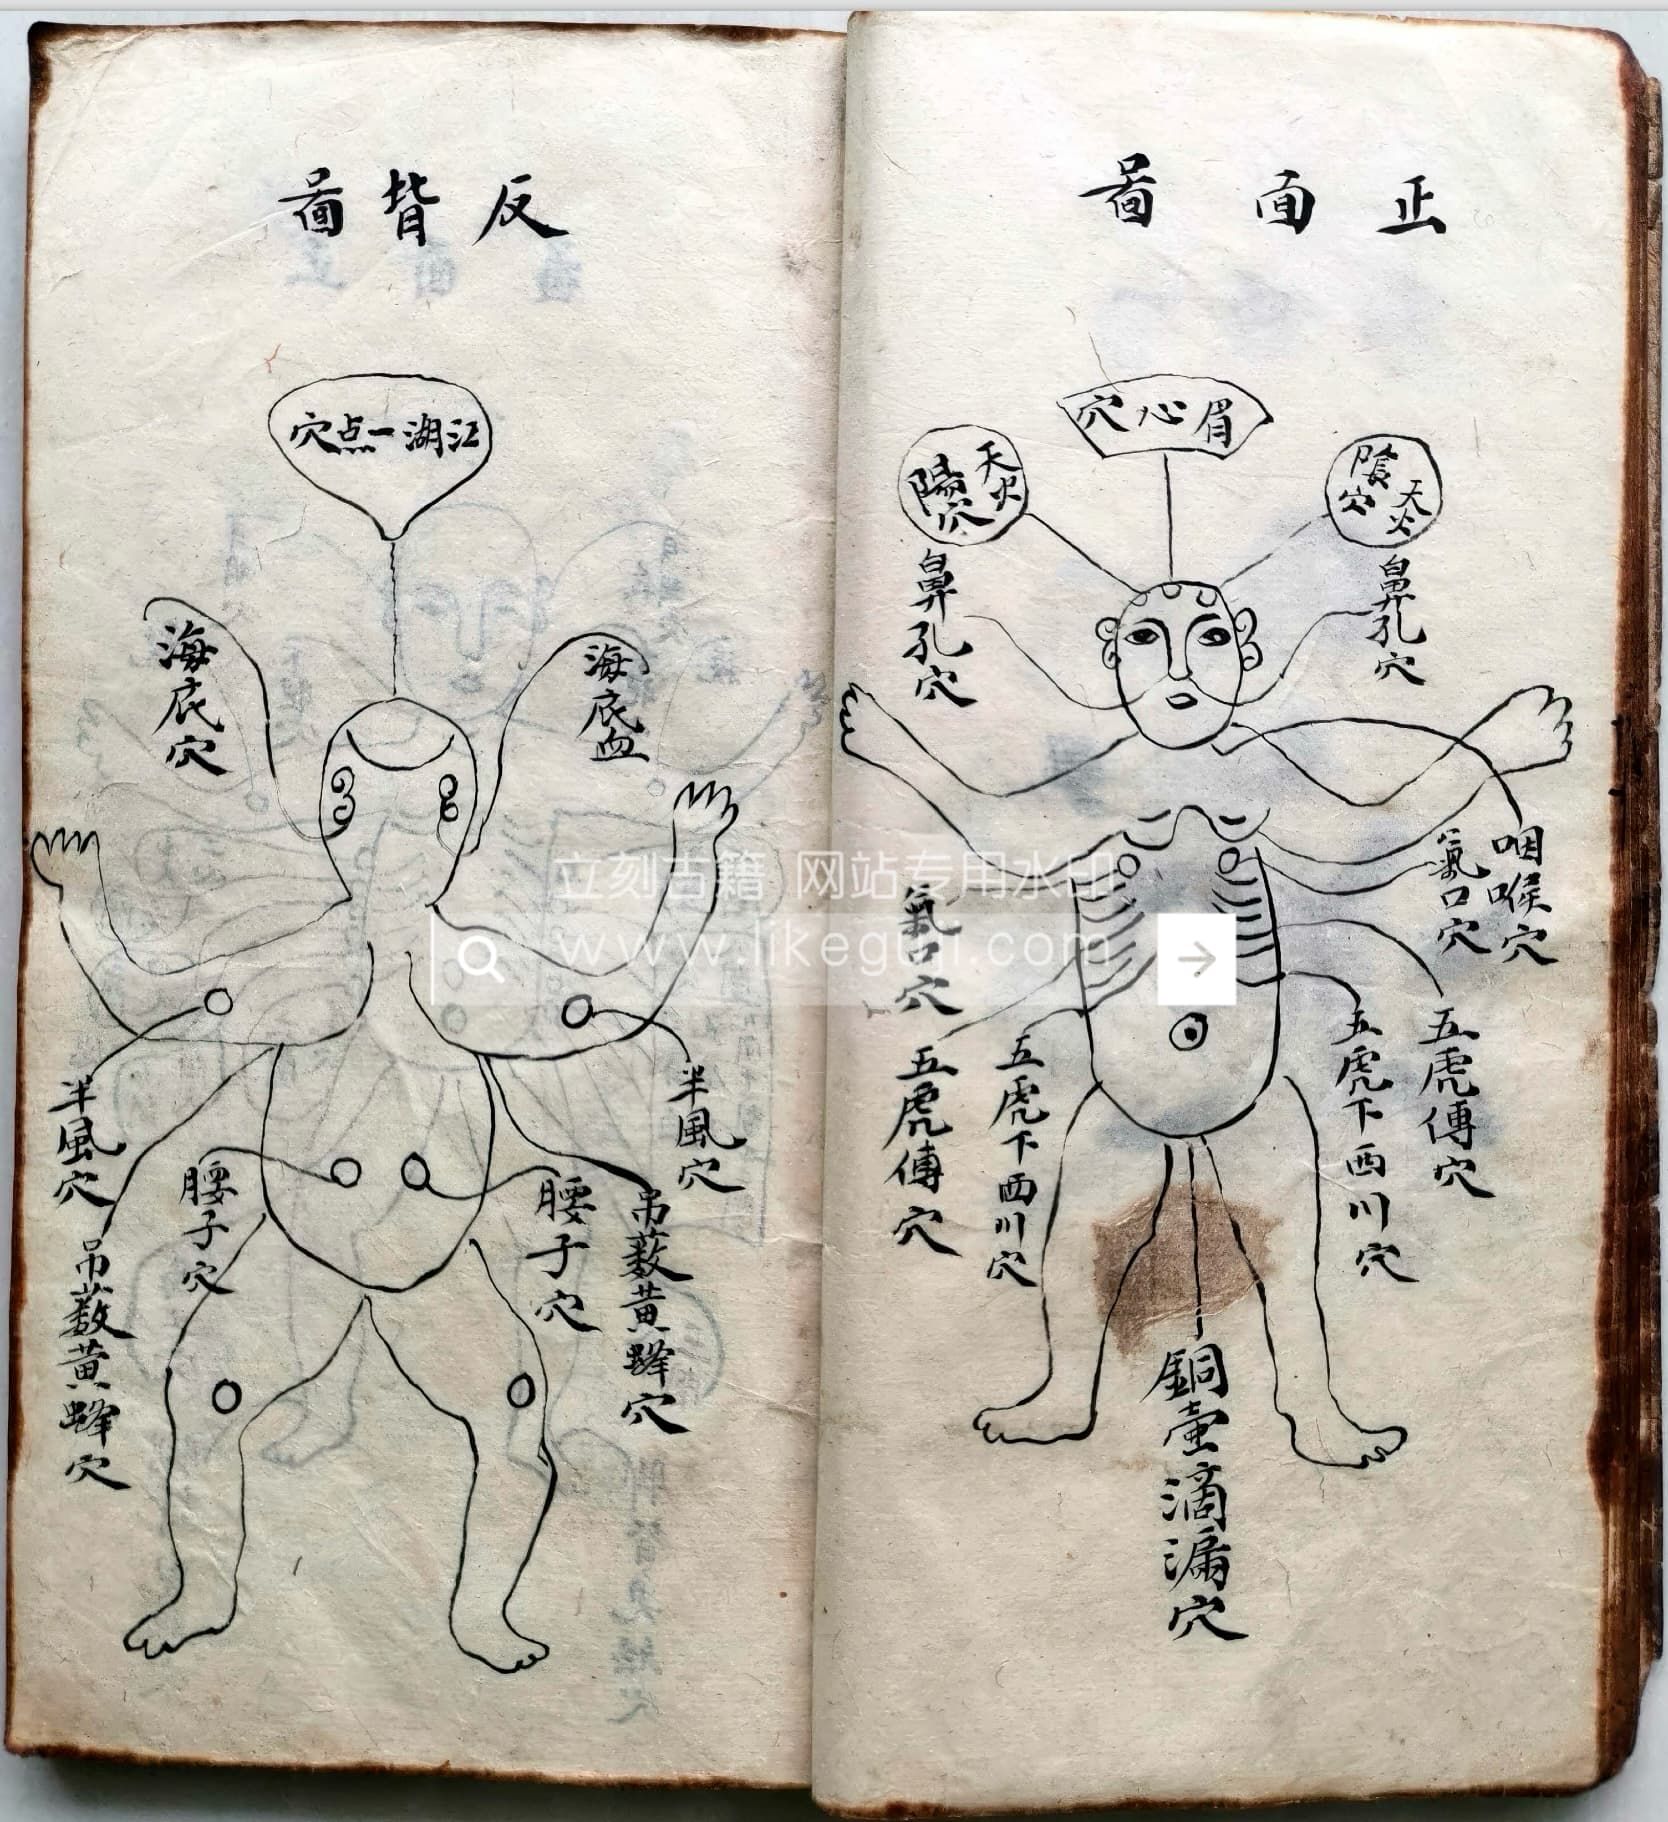 正面啚
眉心穴
天火陰穴
天火陽穴
鼻孔穴
鼻孔穴
咽喉穴
氣口穴
氣口穴
五虎傳穴
五虎下西川穴
五虎下西川穴
五虎傳穴
銅壺滴漏穴
反背啚
江湖一点穴
海底血
海底穴
半風穴
半風穴
吊薮黄蜂穴
腰子穴
腰子穴
吊薮黄蜂穴
立刻古籍 网站专用水印
www.likeguji.com